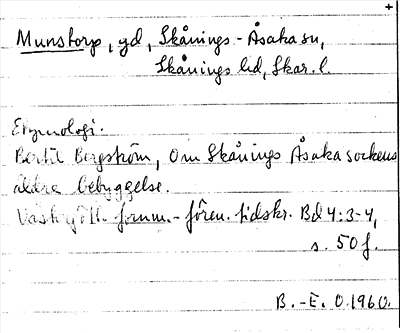 +
Munstorp, gd, Skånings-Åsaka sn,
Skånings hd, Skar. l.
Etymologi.
Bertil Bergström, Om Skånings Åsaka sockens
äldre bebyggelse.
Västergötl. fornm.-fören. tidskr. Bd 4:3-4,
s. 50 f.
B.-E. O. 1960.